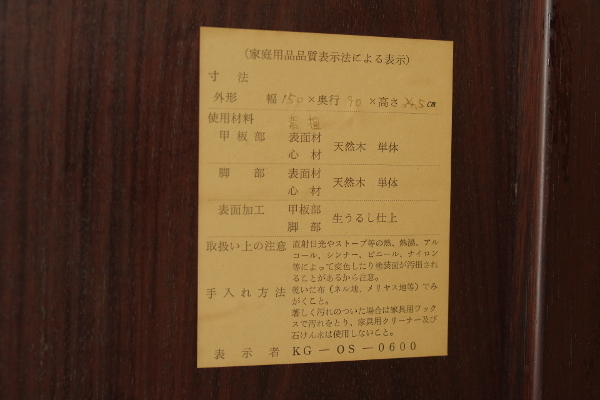 (家庭用品品質表示法による表示)
寸 法
外形 幅 150 × 奥行 90 × 高さ 34.5 cm
使用材料 紫檀
甲板部 表面材
心 材 天然木 単体
脚 部 表面材
心 材 天然木 単体
表面加工 甲板部
脚 部 生うるし仕上
取扱い上の注意 直射日光やストーブ等の熱、熱湯、アル
コール、シンナー、ビニール、ナイロン
等によって変色したり塗装面が汚損され
ることがあるから注意。
手入れ方法 乾いた布(ネル地、メリヤス地等)でみ
がくこと。
著しく汚れのついた場合は家具用ワック
スで汚れをとり、家具用クリーナー及び
石けん水は使用しないこと。
表 示 者 KG—OS—0600